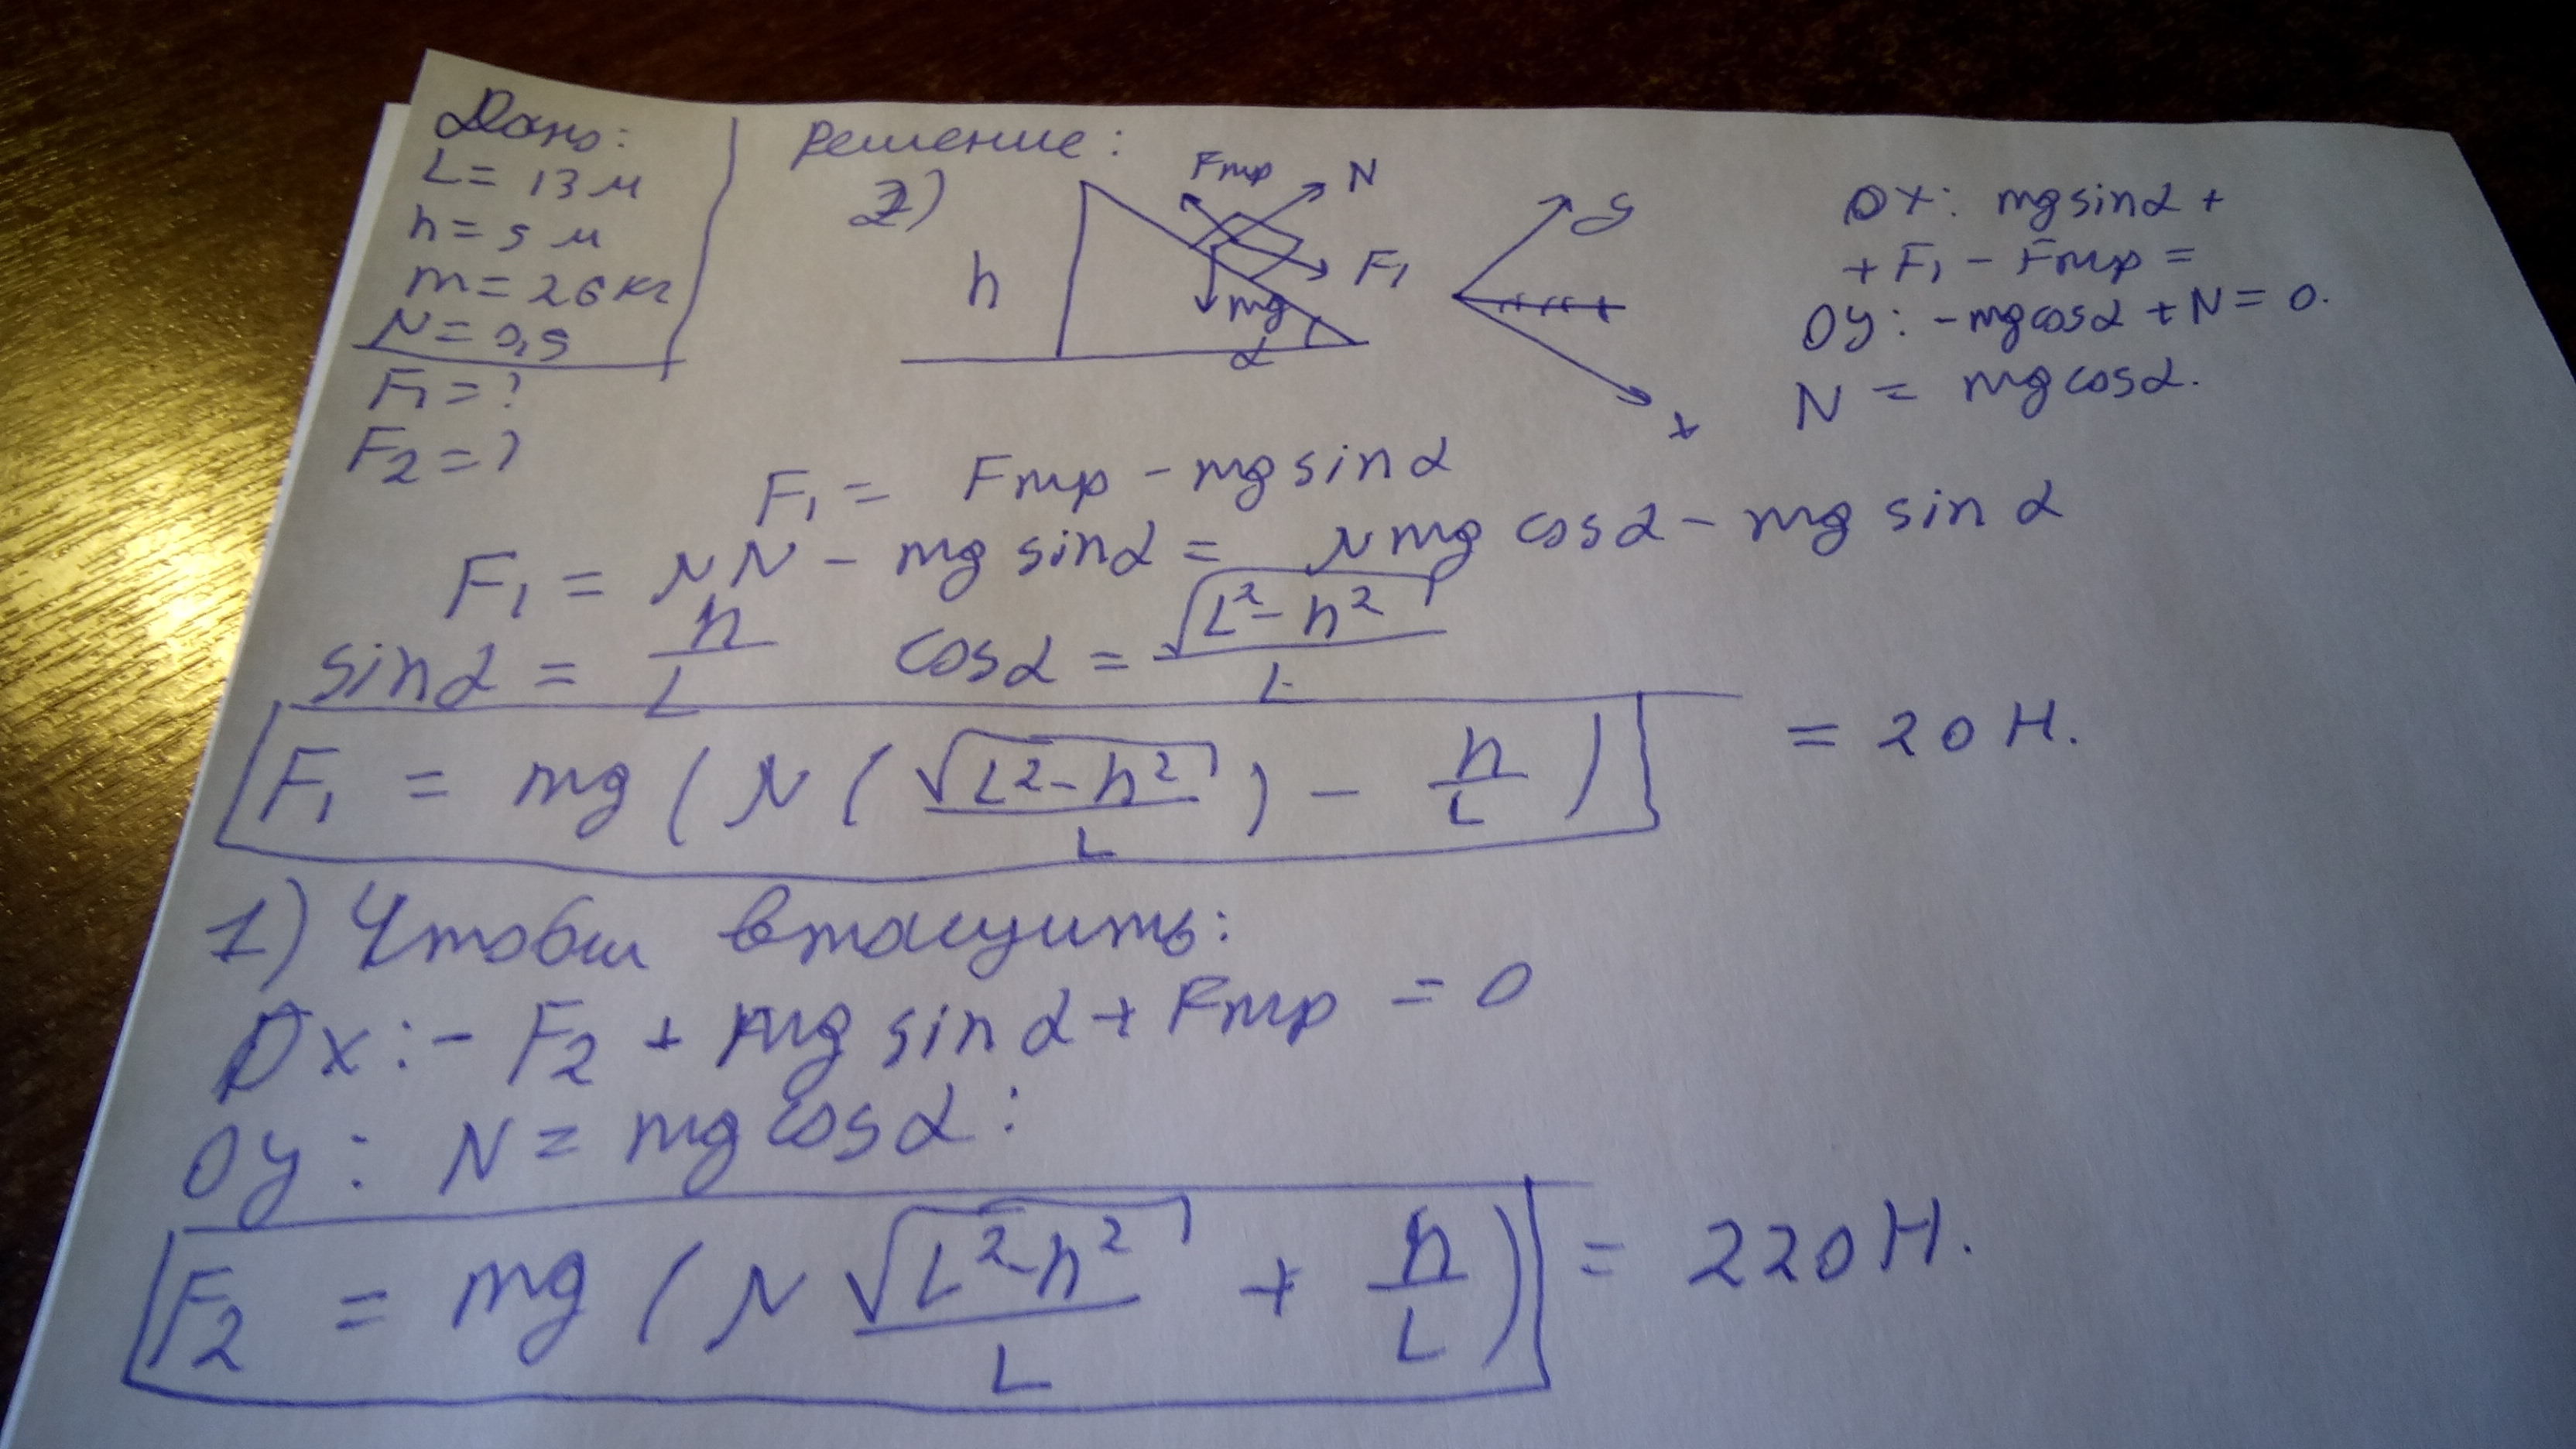 Дано:
L = 13 м
h = 5 м
m = 26 кг
μ = 0,5
F₁ = ?
F₂ = ?
Решение:
2)
Fтр
N
F₁
mg
h
α
y
x
Ox: mg sinα +
+ F₁ - Fтр =
Oy: - mg cosα + N = 0.
N = mg cosα.
F₁ = Fтр - mg sinα
F₁ = μN - mg sinα = μmg cosα - mg sinα
sinα = h/L cosα = √(L² - h²)/L
F₁ = mg (μ (√(L² - h²)/L) - h/L) = 20 Н.
1) Чтобы втащить:
Ox: - F₂ + mg sinα + Fтр = 0
Oy: N = mg cosα:
F₂ = mg (μ √(L² - h²)/L + h/L) = 220 Н.